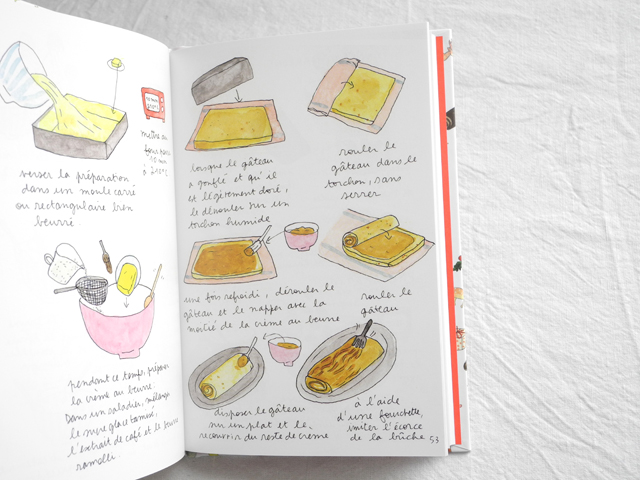 verser la préparation
dans un moule carré
ou rectangulaire bien
beurré
mettre au
four
à 210°C
pendant ce temps, préparer
la crème au beurre.
Dans un saladier, mélanger
le sucre glace tamisé,
l'extrait de café et le beurre
ramolli.
lorsque le gâteau
a gonflé et qu'il
est légèrement doré,
le démouler sur un
torchon humide
rouler le
gâteau dans le
torchon, sans
serrer
une fois refroidi, dérouler le
gâteau et le napper avec la
moitié de la crème au beurre
rouler le
gâteau
disposer le gâteau
sur un plat et le
recouvrir du reste de crème
à l'aide
d'une fourchette,
imiter l'écorce
de la bûche
53